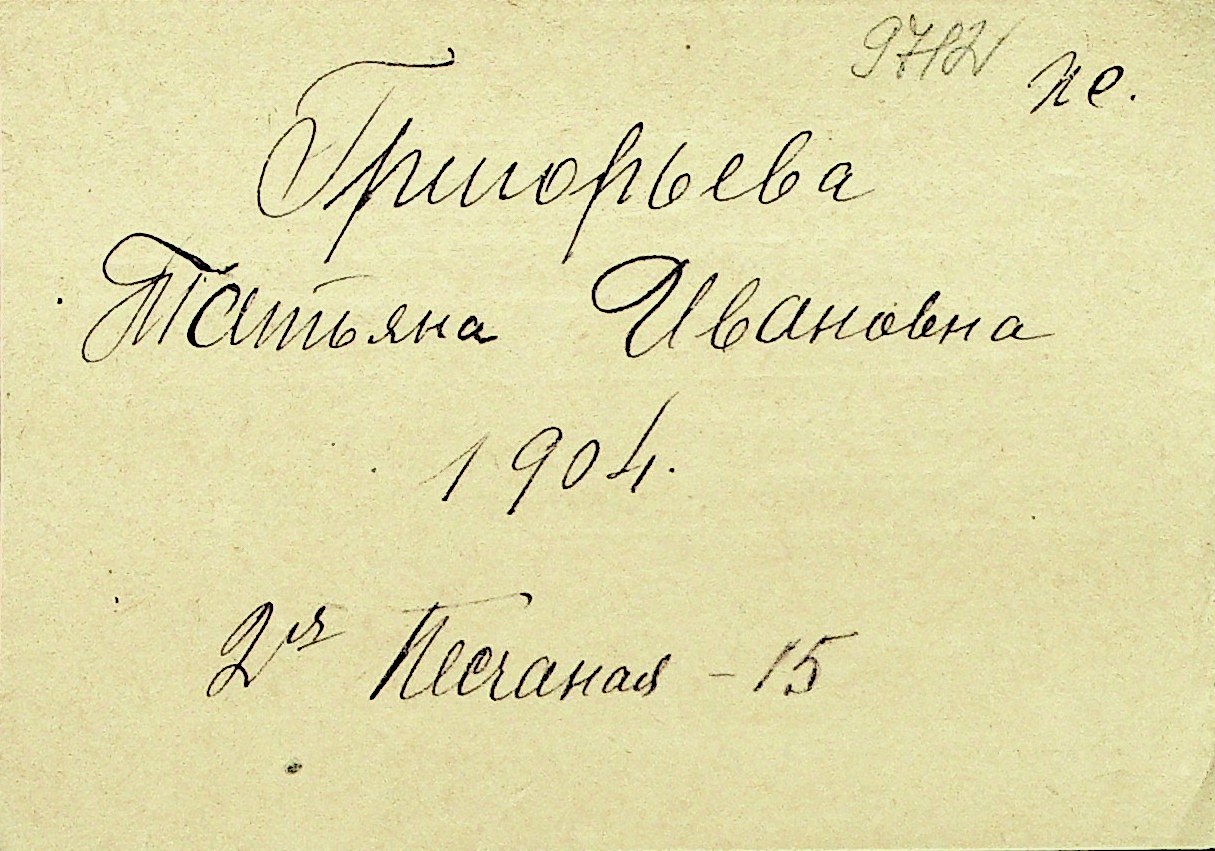 9712
Григорьева
Татьяна Ивановна
1904.
2я Песчаная - 15